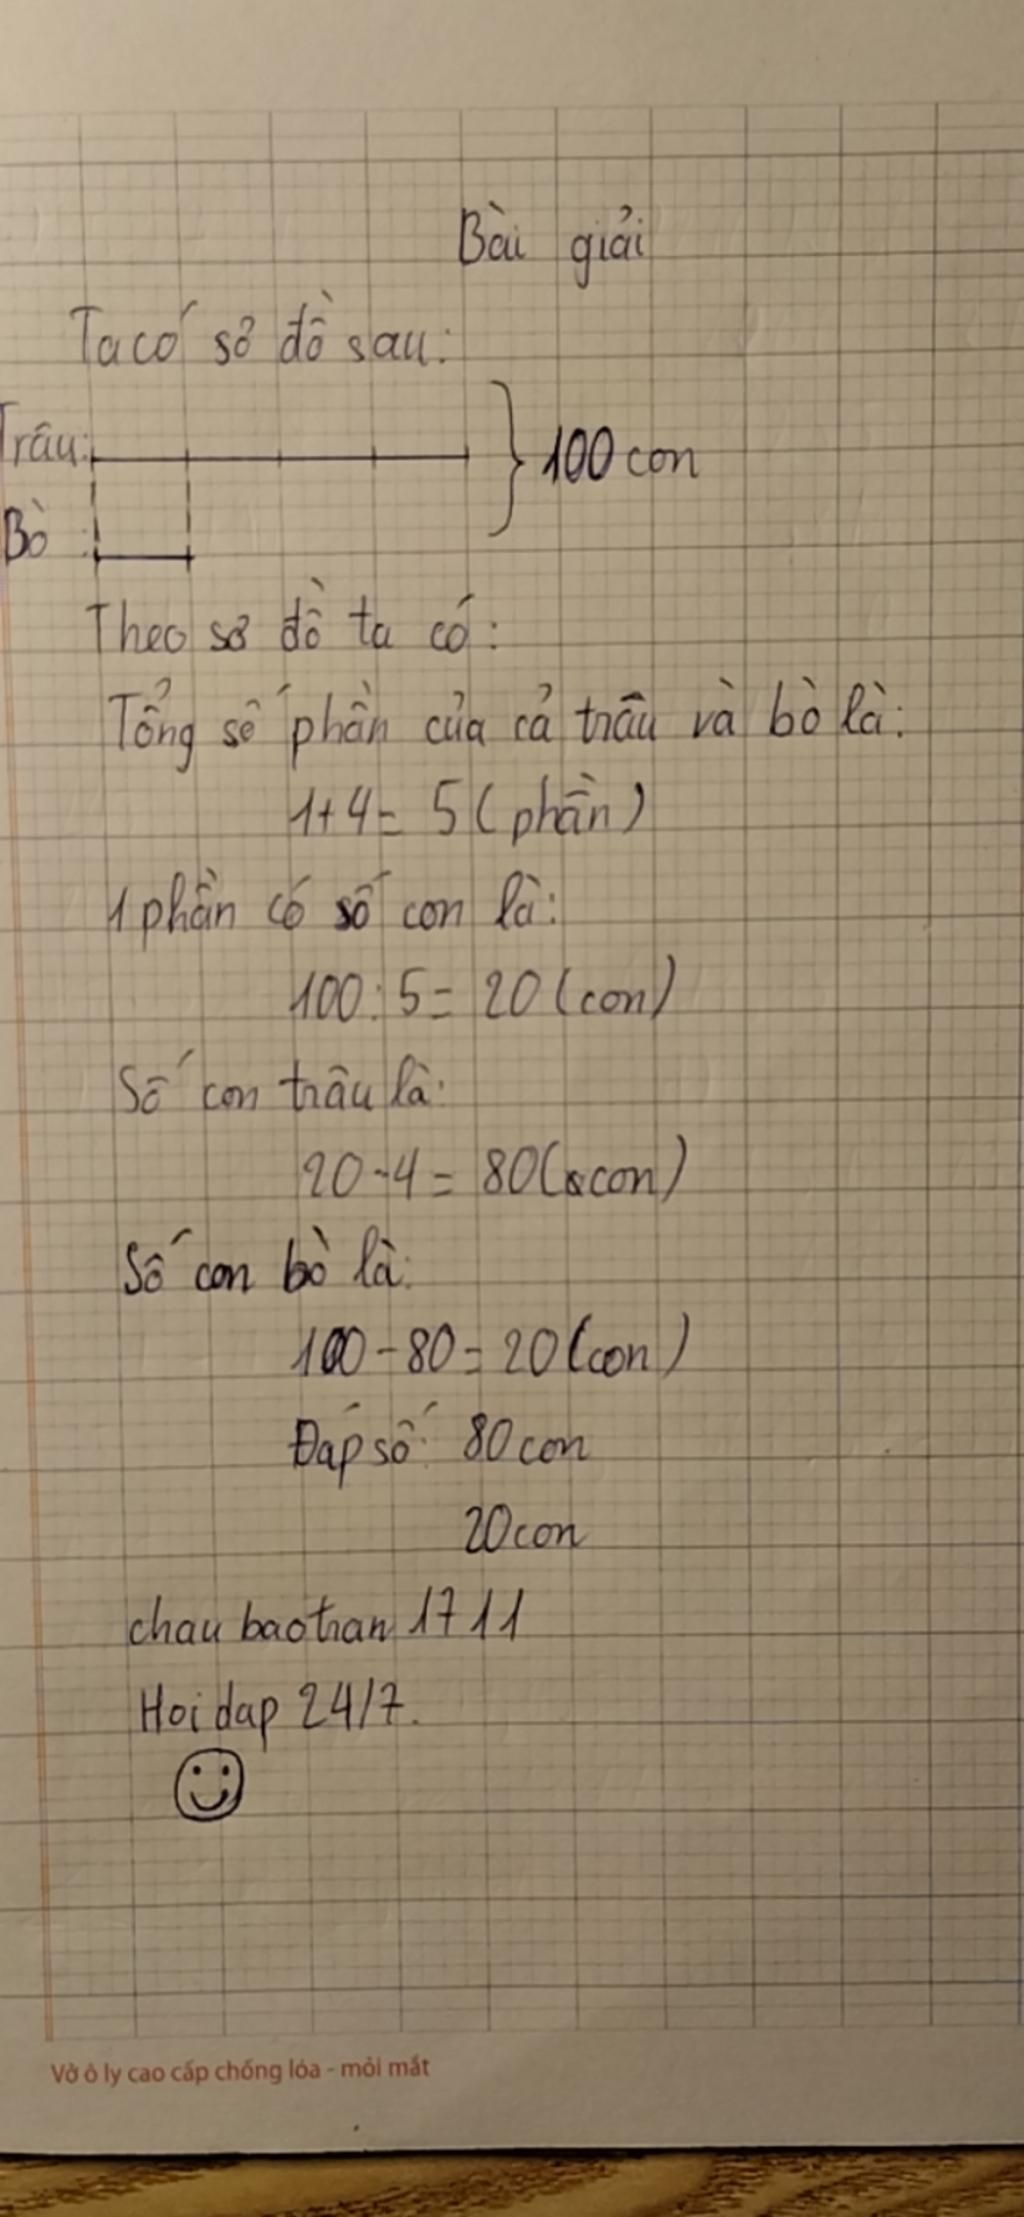 Bài giải
Ta có sơ đồ sau:
Trâu:
100 con
Bò :
Theo sơ đồ ta có:
Tổng số phần của cả trâu và bò là:
1+4= 5 ( phần )
1 phần có số con là:
100: 5= 20 (con)
Số con trâu là:
20-4 = 80 (con)
Số con bò là:
100-80=20 (con)
Đáp số: 80 con
20 con
chau baotran 1711
Hoidap 24/7.
Vở ô ly cao cấp chống lóa - mỏi mắt